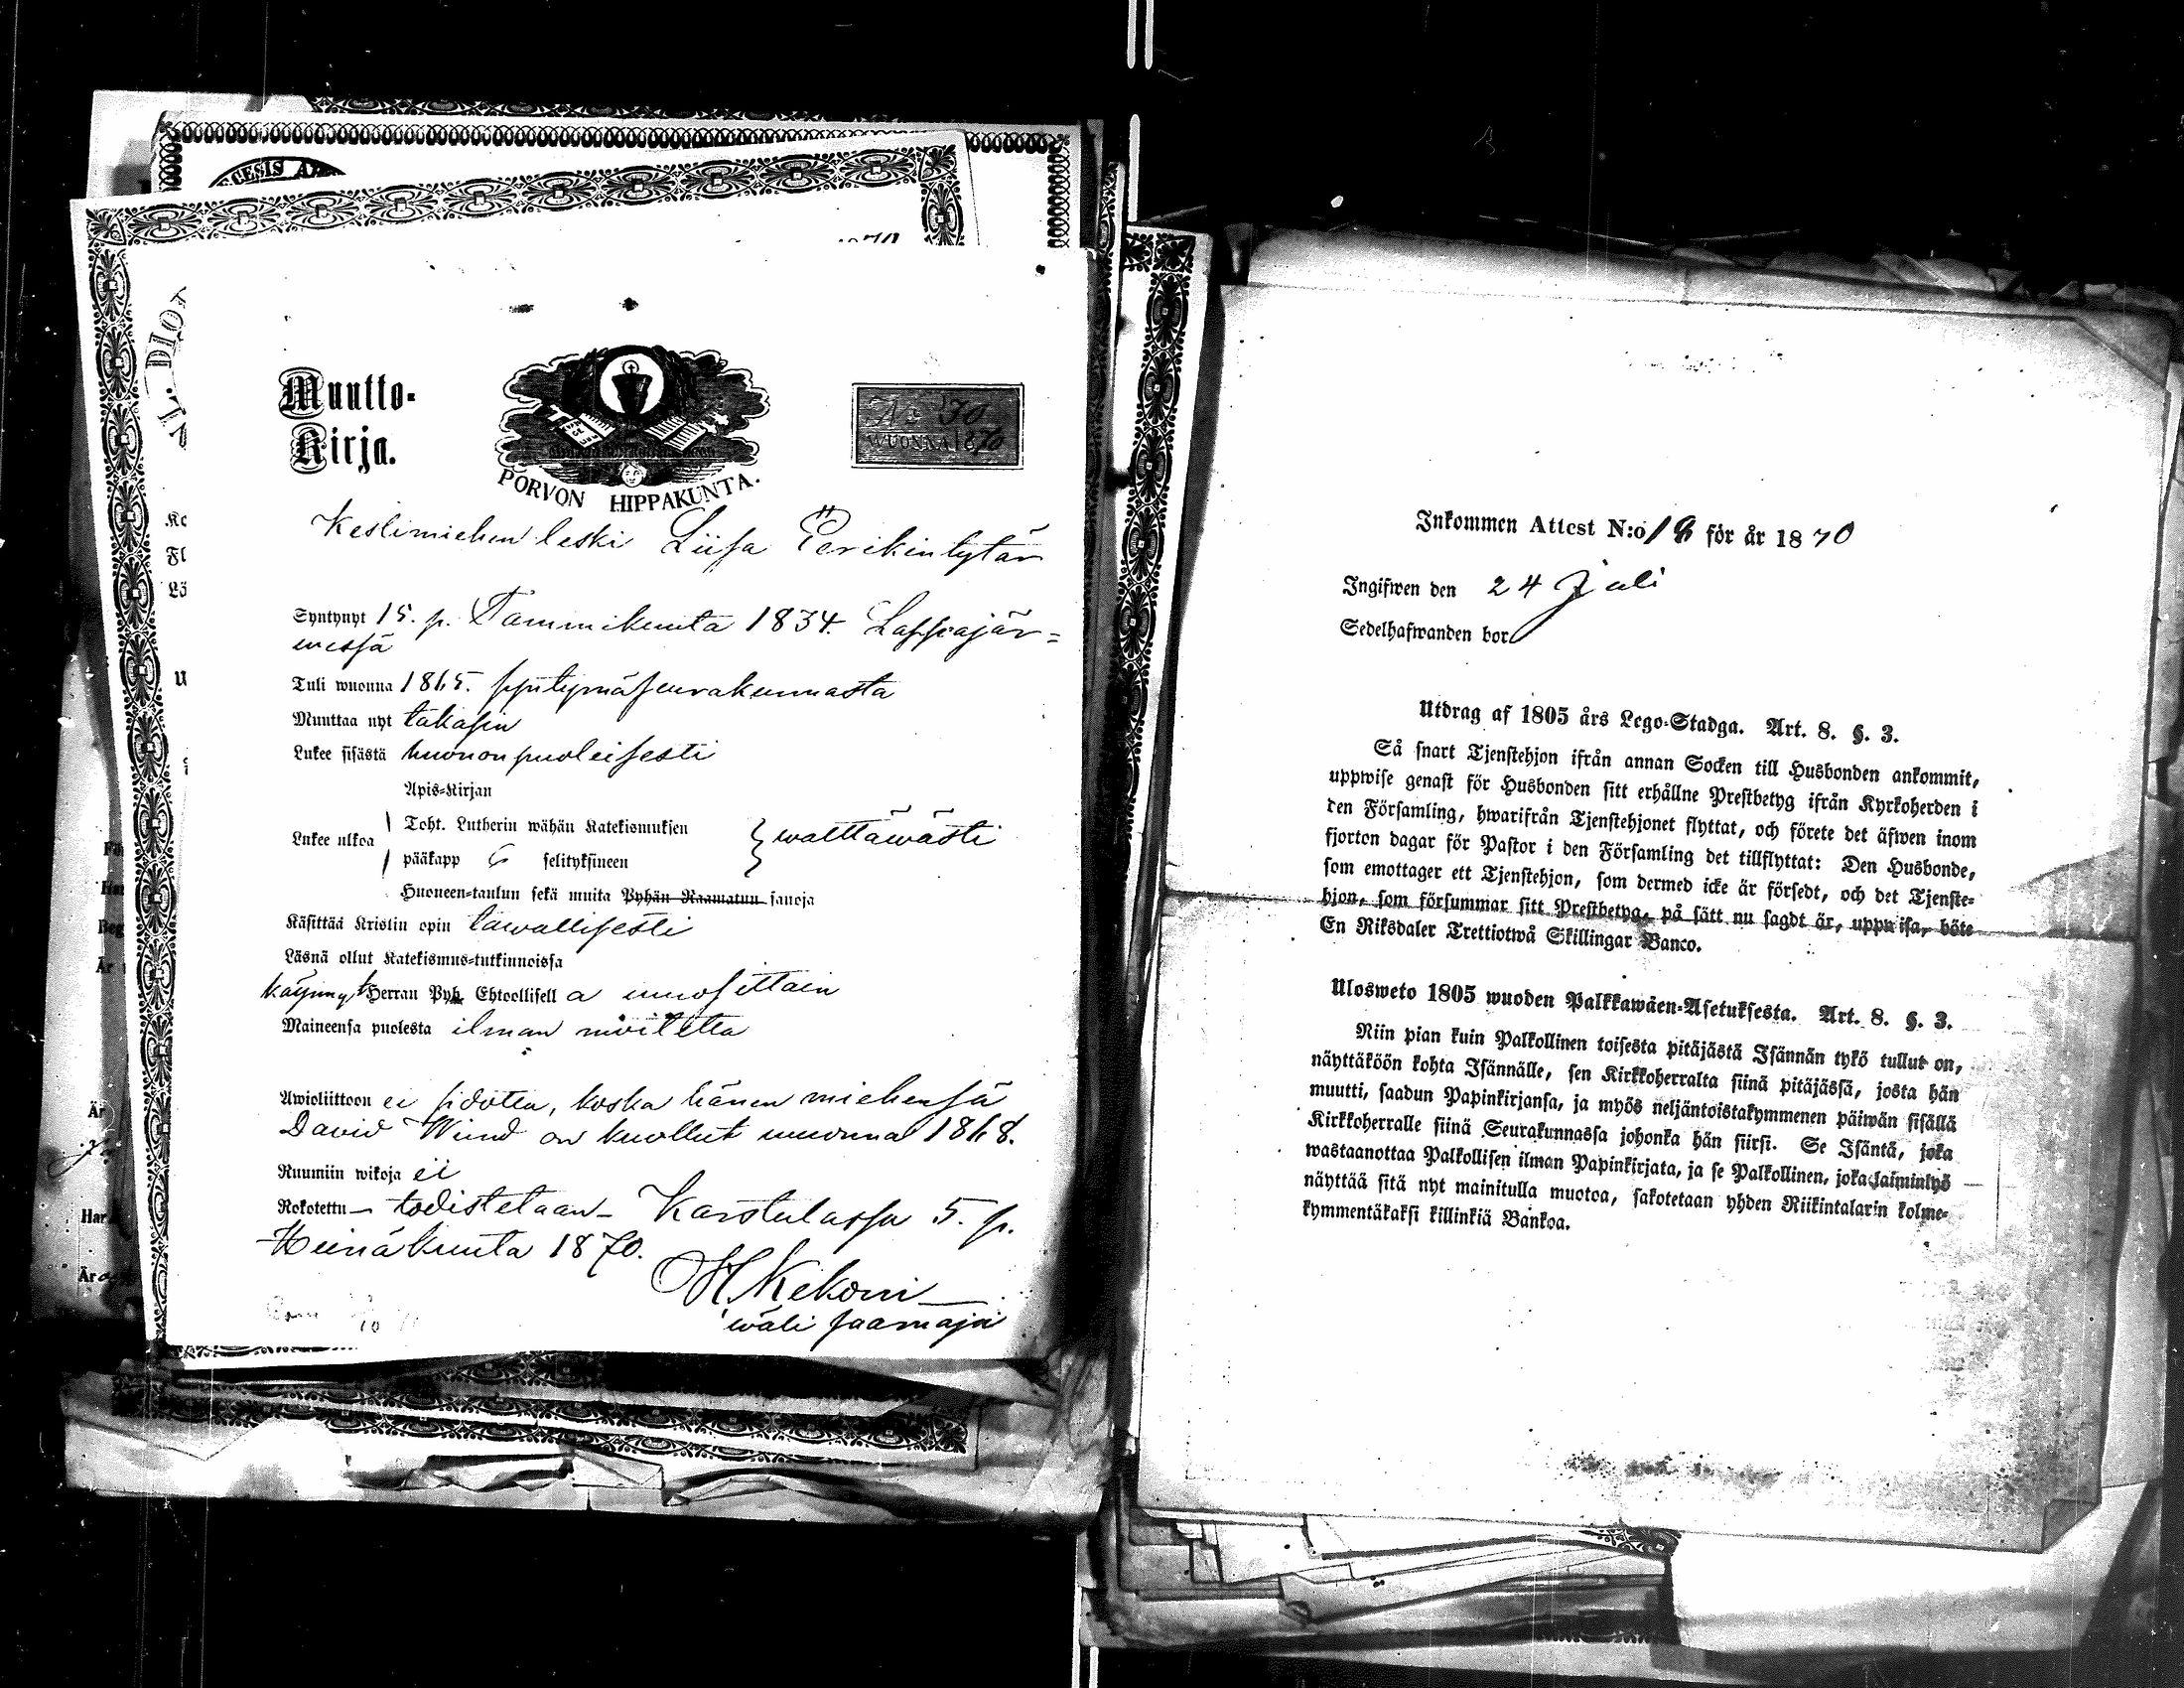 Muutto-
Kirja.
PORVON HIPPAKUNTA.
No 70
WUONNA 1870
Kestimiehen leski Liisa Eerikintytär
Syntynyt 15. p. Tammikuuta 1834. Lappajär=
wessä
Tuli wuonna 1865. syntymäseurakunnasta
Muuttaa nyt takasin
Lukee sisästä huononpuoleisesti
Apis-Kirjan
Lukee ulkoa
Toht. Lutherin wähän Katekismuksen
wälttäwästi
pääkapp 5 selityksineen
Huoneen-taulun sekä muita Pyhän Raamatun sanoja
Käsittää Kristin opin tawallisesti
Läsnä ollut Katekismus-tutkinnoissa
käynyt Herran Pyh. Ehtoollisella wuosittain
Maineensa puolesta ilman moitetta
Awioliittoon ei sidottu, koska hänen miehensä
David Wind on kuollut wuonna 1868.
Ruumiin wikoja ei
Rokotettu — todistetaan — Karstulassa 5. p.
Heinäkuuta 1870.
H. Kekoni
wäli saarnaaja
Inkommen Attest N:o 18 för år 1870
Ingifwen den 24 Juli
Sedelhafwanden bor
Utdrag af 1805 års Lego-Stadga. Art. 8. §. 3.
Så snart Tjenstehjon ifrån annan Socken till Husbonden ankommit,
uppwise genast för Husbonden sitt erhållne Prestbetyg ifrån Kyrkoherden i
den Församling, hwarifrån Tjenstehjonet flyttat, och förete det äfwen inom
fjorton dagar för Pastor i den Församling det tillflyttat: Den Husbonde,
som emottager ett Tjenstehjon, som dermed icke är försedt, och det Tjenste-
hjon, som försummar sitt Prestbetyg, på sätt nu sagdt är, uppwisa, böte
En Riksdaler Trettiotwå Skillingar Banco.
Ulosweto 1805 wuoden Palkkawäen-Asetuksesta. Art. 8. §. 3.
Niin pian kuin Palkollinen toisesta pitäjästä Isännän tykö tullut on,
näyttäköön kohta Isännälle, sen Kirkkoherralta siinä pitäjässä, josta hän
muutti, saadun Papinkirjansa, ja myös neljäntoistakymmenen päiwän sisällä
Kirkkoherralle siinä Seurakunnassa johonka hän siirsi. Se Isäntä, joka
wastaanottaa Palkollisen ilman Papinkirjata, ja se Palkollinen, joka laiminlyö
näyttää sitä nyt mainitulla muotoa, sakotetaan yhden Riikintalarin kolme-
kymmentäkaksi killinkiä Bankoa.